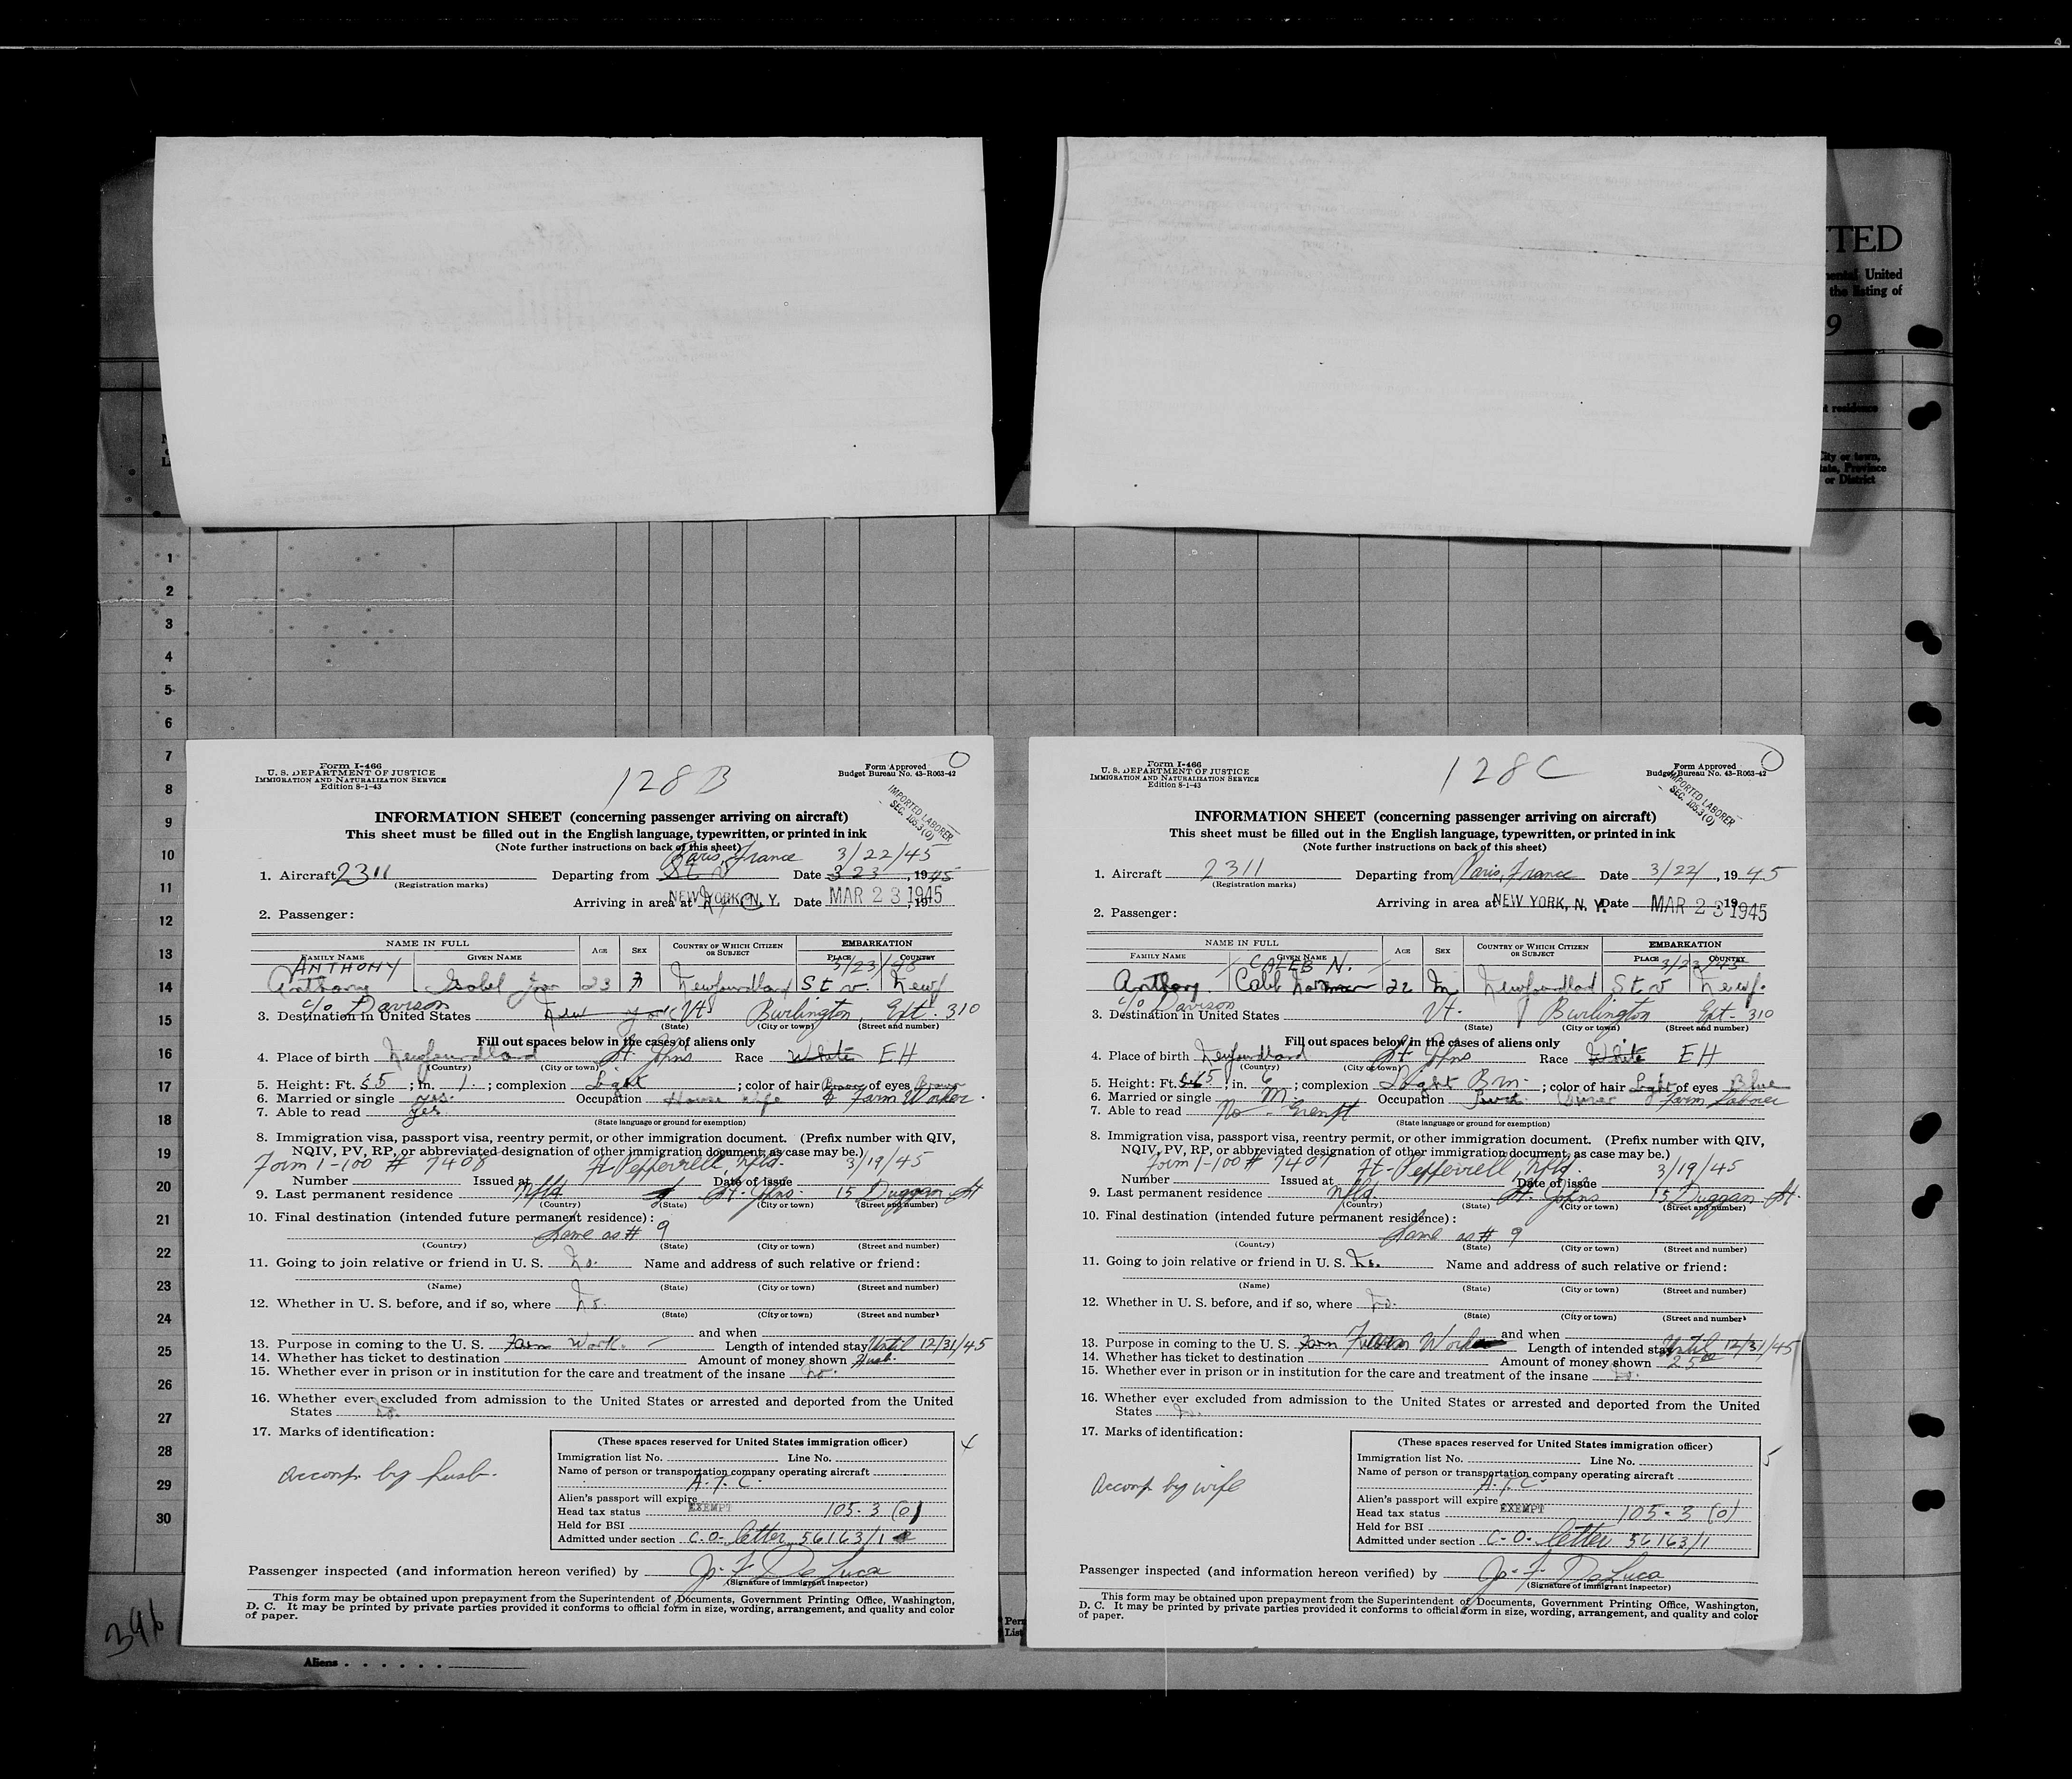 ITED
mental United
the listing of
9
t residence
City or town,
State, Province
or District
1
2
3
4
5
6
7
8
9
10
11
12
13
14
15
16
17
18
19
20
21
22
23
24
25
26
27
28
29
30
Form I-466
U. S. DEPARTMENT OF JUSTICE
IMMIGRATION AND NATURALIZATION SERVICE
Edition 8-1-43
128 B
Form Approved
Budget Bureau No. 43-R063-42
IMPORTED LABORER
SEC. 105.3(0)
INFORMATION SHEET (concerning passenger arriving on aircraft)
This sheet must be filled out in the English language, typewritten, or printed in ink
(Note further instructions on back of this sheet)
Paris, France 3/22/45
1. Aircraft 2311 Departing from St v Date 3 23, 1945
(Registration marks)
Arriving in area at NEW YORK, N. Y. Date MAR 23 1945
2. Passenger:
NAME IN FULL AGE SEX COUNTRY OF WHICH CITIZEN OR SUBJECT EMBARKATION
FAMILY NAME GIVEN NAME PLACE COUNTRY
ANTHONY 3/23/45
Anthony Isobel Joan 23 F Newfoundland St v. Newf
c/o Davison
3. Destination in United States New York Vt Burlington, Ext. 310
(State) (City or town) (Street and number)
Fill out spaces below in the cases of aliens only
4. Place of birth Newfoundland St. Johns Race White EH
(Country) (City or town)
5. Height: Ft. 5; in. 1.; complexion Light; color of hair Brown of eyes Brown
6. Married or single yes. Occupation House wife & Farm Worker.
7. Able to read yes
(State language or ground for exemption)
8. Immigration visa, passport visa, reentry permit, or other immigration document. (Prefix number with QIV,
NQIV, PV, RP, or abbreviated designation of other immigration document, as case may be.)
Form I-100 # 7408 Ft Pepperrell, Nfld. 3/19/45
Number Issued at Date of issue
9. Last permanent residence Nfld St. Johns. 15 Duggan St
(Country) (State) (City or town) (Street and number)
10. Final destination (intended future permanent residence):
Same as # 9
(Country) (State) (City or town) (Street and number)
11. Going to join relative or friend in U. S. No. Name and address of such relative or friend:
(Name) (State) (City or town) (Street and number)
12. Whether in U. S. before, and if so, where No.
(State) (City or town) (Street and number)
and when
13. Purpose in coming to the U. S. Farm Work. Length of intended stay Until 12/31/45
14. Whether has ticket to destination Amount of money shown Husb.
15. Whether ever in prison or in institution for the care and treatment of the insane No.
16. Whether ever excluded from admission to the United States or arrested and deported from the United
States No.
17. Marks of identification:
accomp. by husb.
(These spaces reserved for United States immigration officer)
4
Immigration list No. Line No.
Name of person or transportation company operating aircraft
A.T.C.
Alien's passport will expire
Head tax status EXEMPT 105.3 (0)
Held for BSI
Admitted under section C.O. letter 56163/1
Passenger inspected (and information hereon verified) by J. F. DeLuca
(Signature of immigrant inspector)
This form may be obtained upon prepayment from the Superintendent of Documents, Government Printing Office, Washington,
D. C. It may be printed by private parties provided it conforms to official form in size, wording, arrangement, and quality and color
of paper.
Form I-466
U. S. DEPARTMENT OF JUSTICE
IMMIGRATION AND NATURALIZATION SERVICE
Edition 8-1-43
128 C
Form Approved
Budget Bureau No. 43-R063-42
IMPORTED LABORER
SEC. 105.3(0)
INFORMATION SHEET (concerning passenger arriving on aircraft)
This sheet must be filled out in the English language, typewritten, or printed in ink
(Note further instructions on back of this sheet)
1. Aircraft 2311 Departing from Paris, France Date 3/22/, 1945
(Registration marks)
Arriving in area at NEW YORK, N. Y. Date MAR 23 1945
2. Passenger:
NAME IN FULL AGE SEX COUNTRY OF WHICH CITIZEN OR SUBJECT EMBARKATION
FAMILY NAME GIVEN NAME PLACE COUNTRY
CALEB N. 3/23/45
Anthony. Caleb Norman 22 M Newfoundland St v Newf.
c/o Davison
3. Destination in United States Vt. Burlington Ext- 310
(State) (City or town) (Street and number)
Fill out spaces below in the cases of aliens only
4. Place of birth Newfoundland St. Johns Race White EH
(Country) (City or town)
5. Height: Ft. 5; in. 6; complexion Light Brn.; color of hair Light of eyes Blue
6. Married or single M. Occupation Truck Driver Farm Laborer
7. Able to read No - Exempt
(State language or ground for exemption)
8. Immigration visa, passport visa, reentry permit, or other immigration document. (Prefix number with QIV,
NQIV, PV, RP, or abbreviated designation of other immigration document, as case may be.)
Form I-100 # 7407 Ft-Pepperrell, Nfld. 3/19/45
Number Issued at Date of issue
9. Last permanent residence Nfld. St. Johns 15 Duggan St.
(Country) (State) (City or town) (Street and number)
10. Final destination (intended future permanent residence):
Same as # 9
(Country) (State) (City or town) (Street and number)
11. Going to join relative or friend in U. S. No. Name and address of such relative or friend:
(Name) (State) (City or town) (Street and number)
12. Whether in U. S. before, and if so, where No.
(State) (City or town) (Street and number)
and when
13. Purpose in coming to the U. S. Farm Farm Work Length of intended stay Until 12/31/45
14. Whether has ticket to destination Amount of money shown 25 00
15. Whether ever in prison or in institution for the care and treatment of the insane No.
16. Whether ever excluded from admission to the United States or arrested and deported from the United
States No.
17. Marks of identification:
accomp by wife
(These spaces reserved for United States immigration officer)
5
Immigration list No. Line No.
Name of person or transportation company operating aircraft
A.T.C.
Alien's passport will expire
Head tax status EXEMPT 105.3 (0)
Held for BSI
Admitted under section C.O. letter 56163/1
Passenger inspected (and information hereon verified) by J. F. DeLuca
(Signature of immigrant inspector)
This form may be obtained upon prepayment from the Superintendent of Documents, Government Printing Office, Washington,
D. C. It may be printed by private parties provided it conforms to official form in size, wording, arrangement, and quality and color
of paper.
396
Aliens